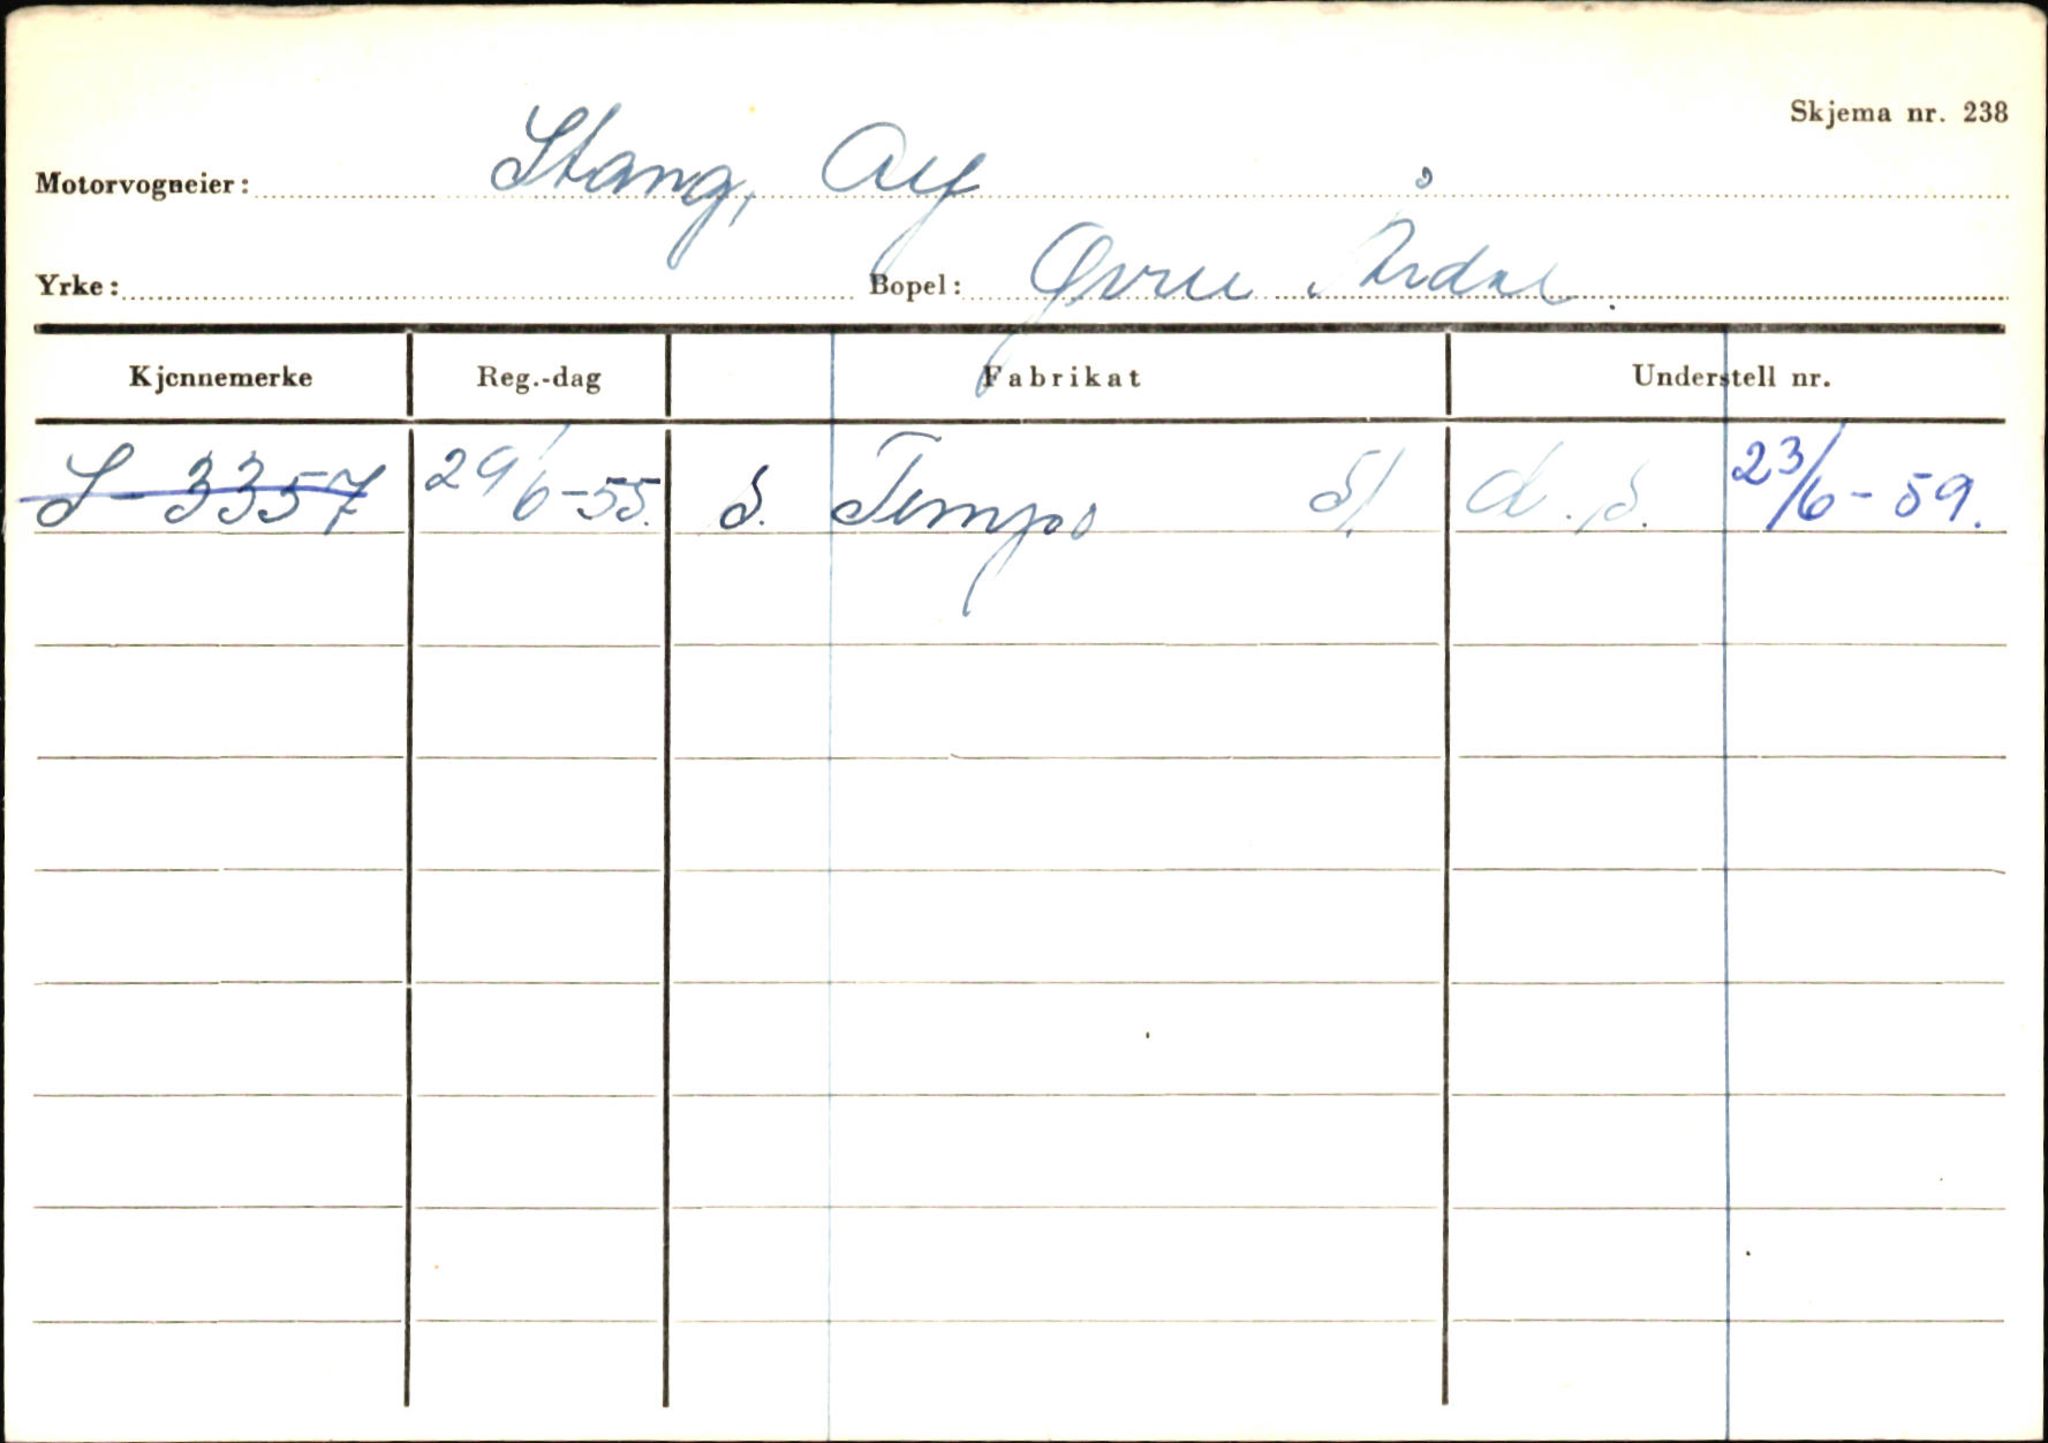 Skjema nr. 238
Motorvogneier: Stang, Alf
Yrke: Bopel: Øvre Årdal.
Kjennemerke Reg.-dag Fabrikat Understell nr.
S-3357 29/6-55. S. Tempo S/. d.s. 23/6-59.